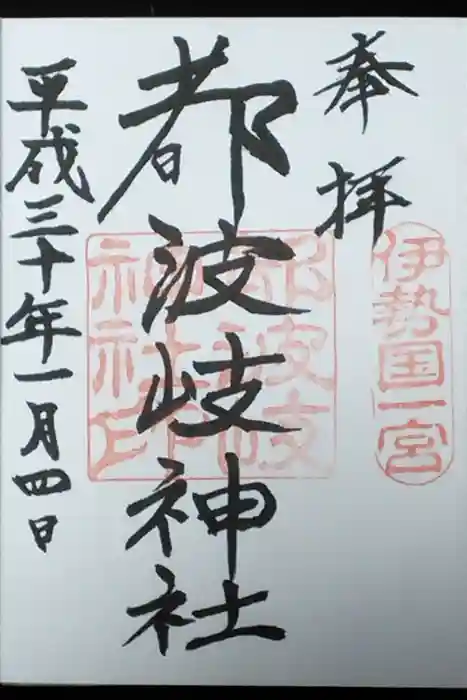 奉拝
伊勢国一宮
都波岐神社
都波岐
神社印
平成三十年一月四日